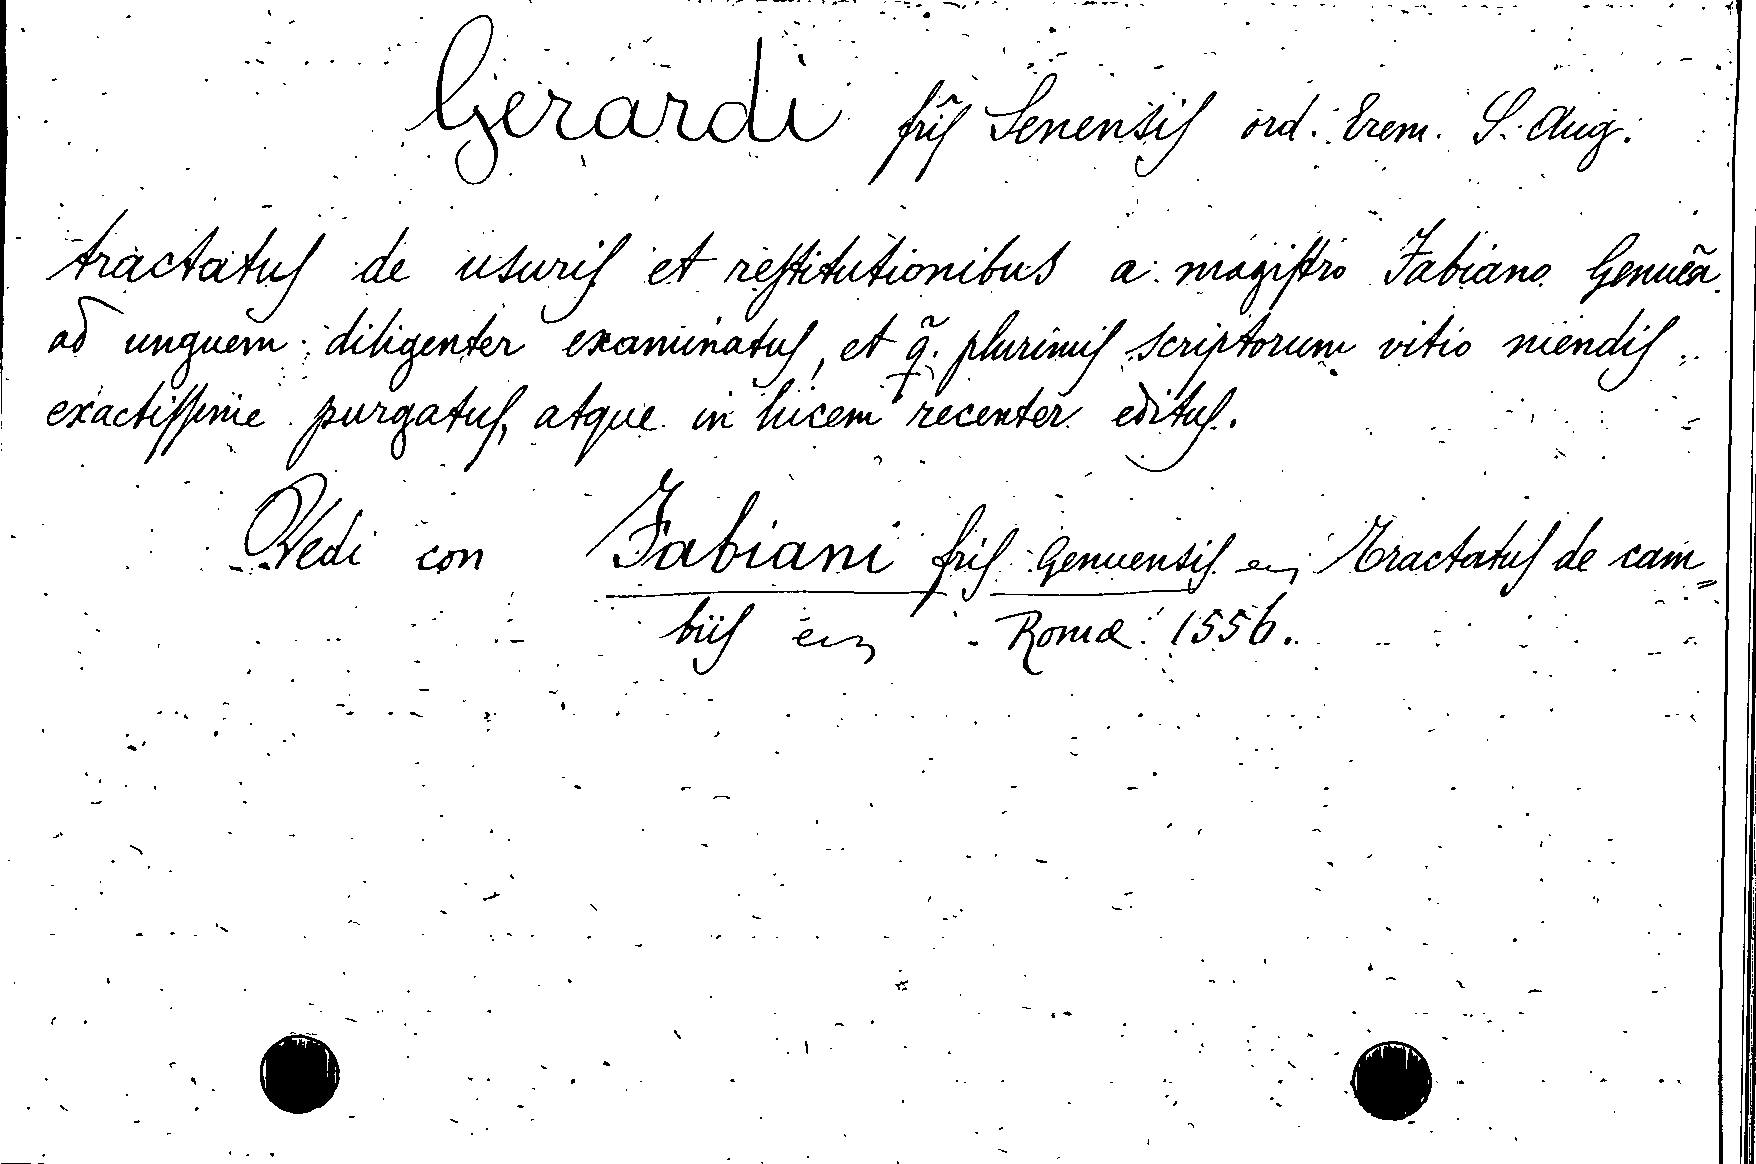 Gerardi frĩs Senensis ord. Erem. S. Aug.
tractatus de usuris et restitutionibus a magistro Fabiano Genuẽn.
ad unguem diligenter examinatus, et q̃. plurimis scriptorum vitio mendis
exactissime purgatus, atque in lucem recenter editus.
Vedi con Fabiani fris Genuensis Tractatus de cam=
biis Romæ 1556.